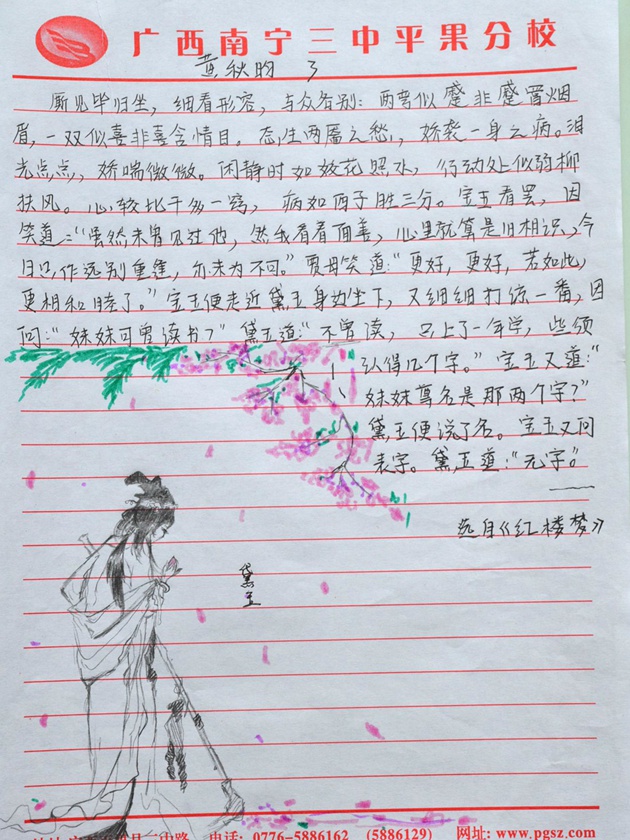 广西南宁三中平果分校
黄秋明 3
厮见毕归坐，细看形容，与众各别：两弯似蹙非蹙罥烟
眉，一双似喜非喜含情目。态生两靥之愁，娇袭一身之病。泪
光点点，娇喘微微。闲静时如姣花照水，行动处似弱柳
扶风。心较比干多一窍，病如西子胜三分。宝玉看罢，因
笑道：“虽然未曾见过他，然我看着面善，心里就算是旧相识，今
日只作远别重逢，亦未为不可。”贾母笑道：“更好，更好，若如此，
更相和睦了。”宝玉便走近黛玉身边坐下，又细细打谅一番，因
问：“妹妹可曾读书？”黛玉道：“不曾读，只上了一年学，些须
认得几个字。”宝玉又道：“
妹妹尊名是那两个字？”
黛玉便说了名。宝玉又问
表字。黛玉道：“无字”。
——
选自《红楼梦》
黛玉
二中路 电话：0776-5886162 (5886129) 网址：www.pgsz.com